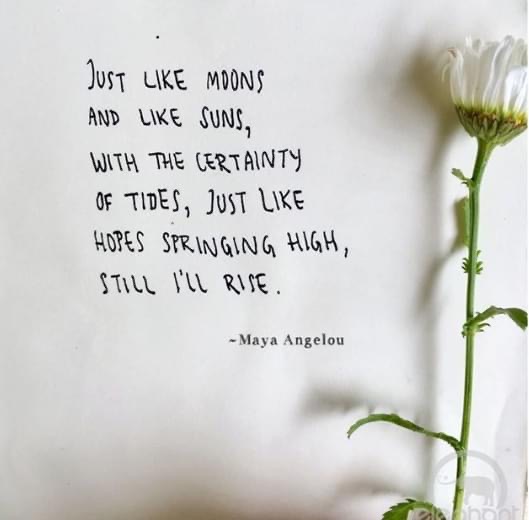 JUST LIKE MOONS
AND LIKE SUNS,
WITH THE CERTAINTY
OF TIDES, JUST LIKE
HOPES SPRINGING HIGH,
STILL I'LL RISE.
~Maya Angelou
elephant